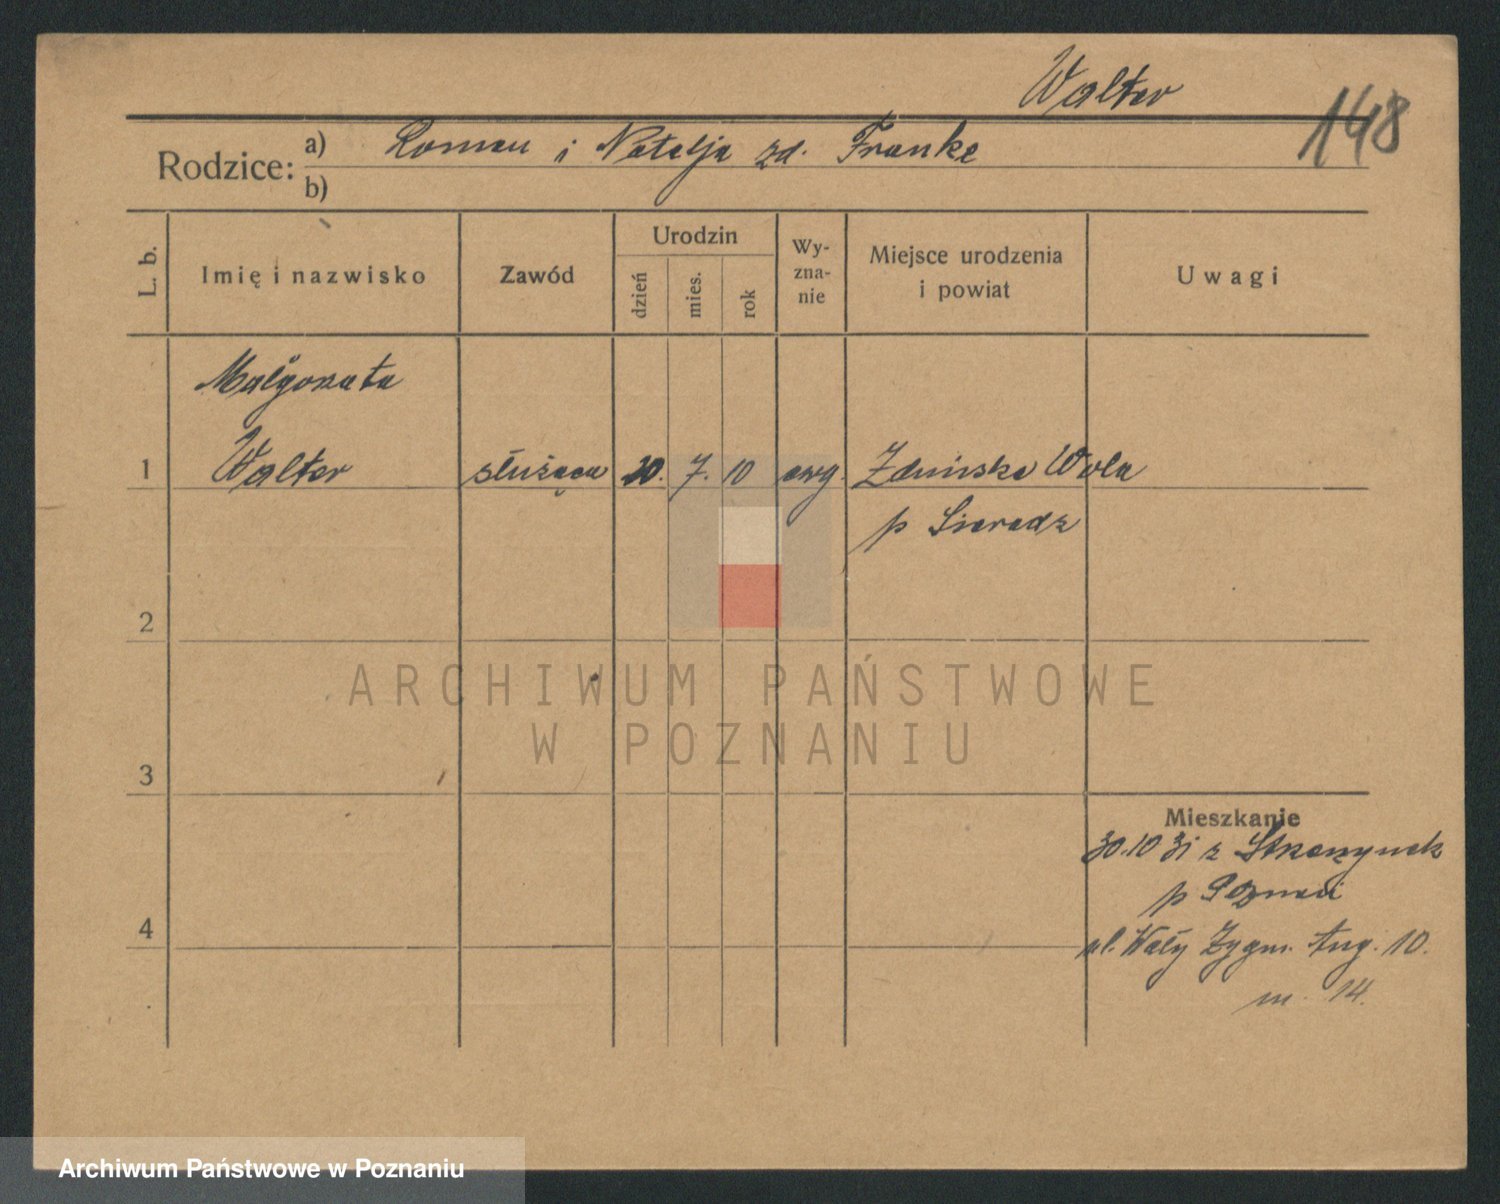 Walter
148
Rodzice: a) Roman i Natalja zd. Franke
b)
L. b.
Imię i nazwisko
Zawód
Urodzin
dzień
mies.
rok
Wy-
zna-
nie
Miejsce urodzenia
i powiat
Uwagi
Małgorzata
1 Walter służąca 20. 7. 10 ewg. Zduńska Wola
p Sieradz
2
ARCHIWUM PAŃSTWOWE
W POZNANIU
3
Mieszkanie
30.10 31 z Strzeszynek
p Poznań
4
ul. Wały Zygm. Aug. 10.
m. 14.
Archiwum Państwowe w Poznaniu